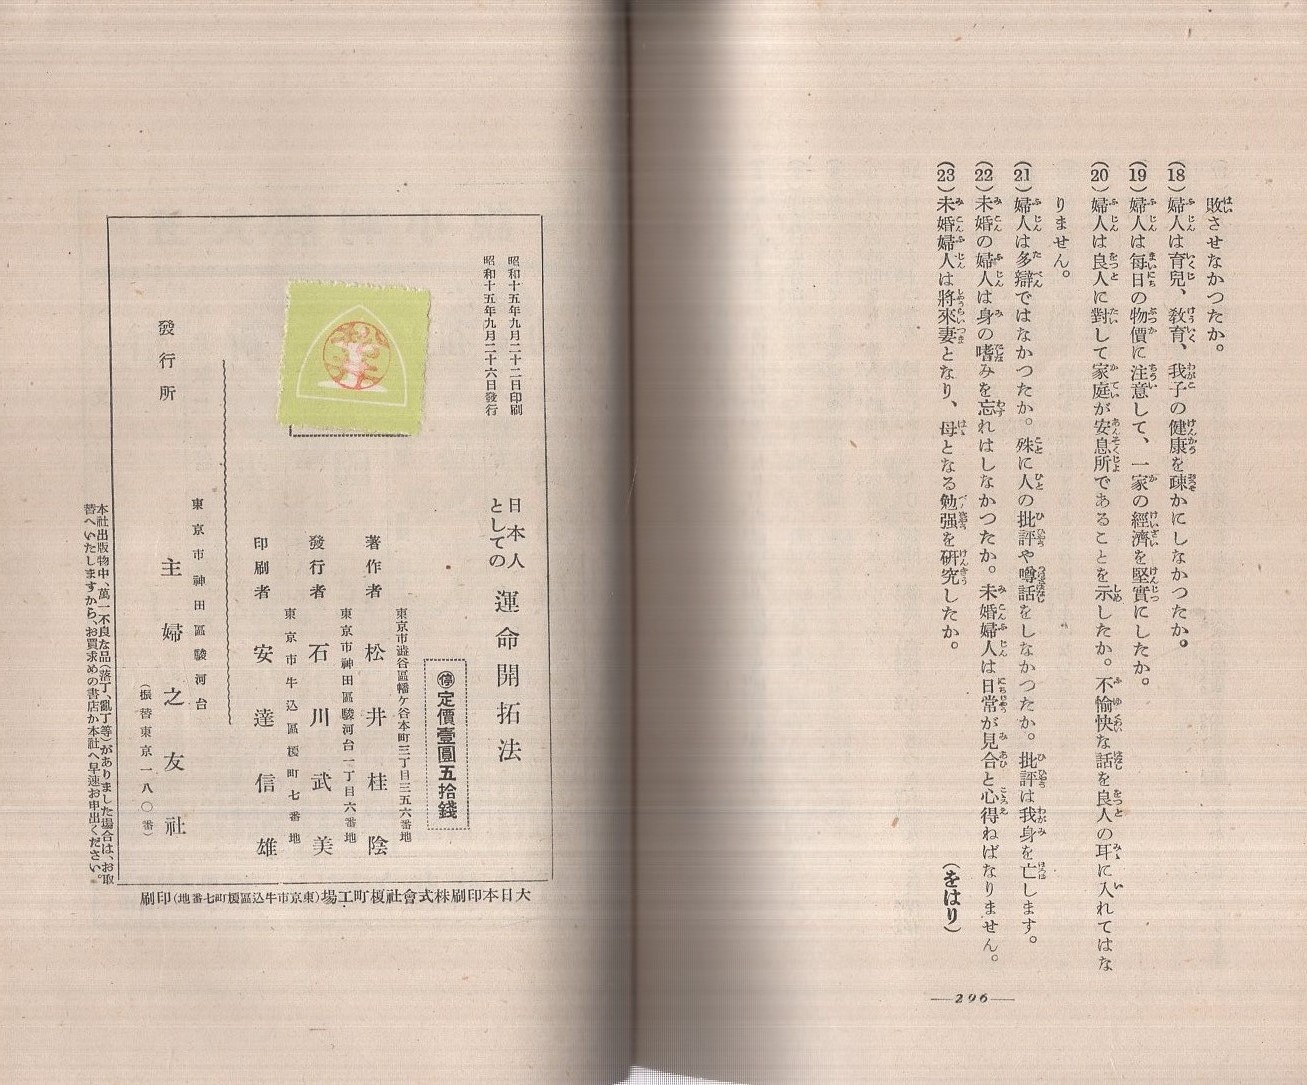 敗させなかつたか。
(18) 婦人は育兒、敎育、我子の健康を疎かにしなかつたか。
(19) 婦人は每日の物價に注意して、一家の經濟を堅實にしたか。
(20) 婦人は良人に對して家庭が安息所であることを示したか。不愉快な話を良人の耳に入れてはな
りません。
(21) 婦人は多辯ではなかつたか。殊に人の批評や噂話をしなかつたか。批評は我身を亡します。
(22) 未婚の婦人は身の嗜みを忘れはしなかつたか。未婚婦人は日常が見合と心得ねばなりません。
(23) 未婚婦人は將來妻となり、母となる勉强を硏究したか。
(をはり)
—296—
昭和十五年九月二十二日印刷
昭和十五年九月二十六日發行
日本人
としての
運命開拓法
㊡定價壹圓五拾錢
東京市澁谷區幡ケ谷本町三丁目三五六番地
著作者 松井桂陰
東京市神田區駿河台一丁目六番地
發行者 石川武美
東京市牛込區榎町七番地
印刷者 安達信雄
發行所
東京市神田區駿河台
主婦之友社
(振替東京一八〇番)
本社出版物中、萬一不良な品(落丁、亂丁等)がありました場合は、お取
替へいたしますから、お買求めの書店か本社へ早速お申出ください。
大日本印刷株式會社榎町工場(東京市牛込區榎町七番地)印刷